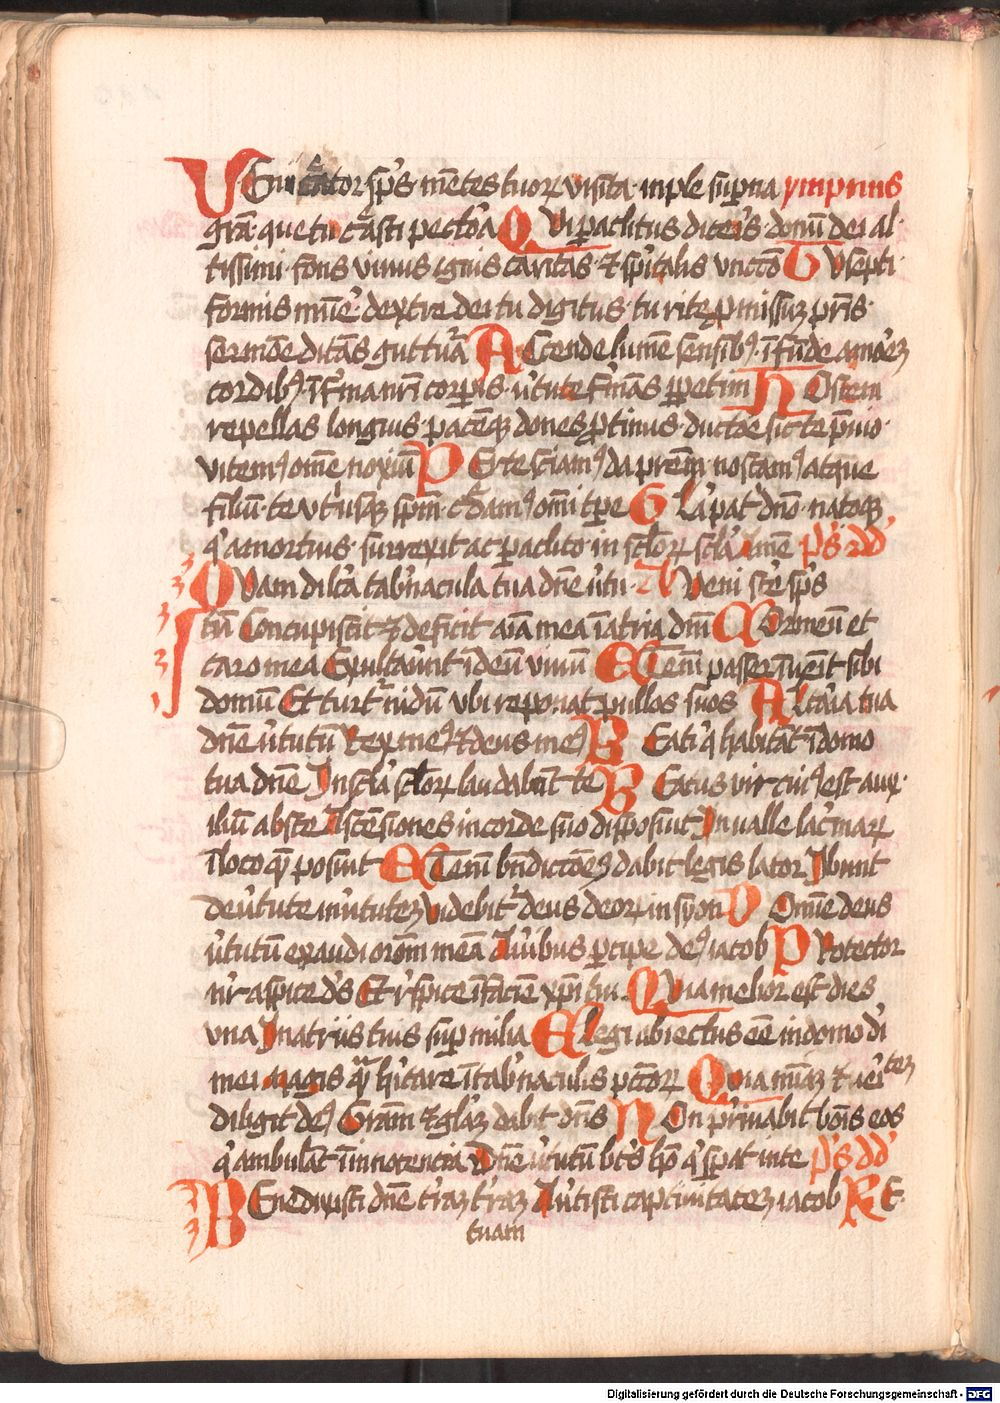 VEni c̄ator sp̄s mētes tuoꝝ visita imple sup̄na ympnus
gr̄a que tu c̄asti pectōa QVi pac̄litus dicēis donū dei al-
tissimi fons viuus ignis caritas ⁊ sp̄italis vnctō TV septi-
formis mūe᷑ dextre dei tu digitus tu rite ꝓmissuꝫ pr̄is
sermōe ditās guttu᷑a ACcende lumē sensibꝰ īfūde amo᷑eꝫ
cordibꝰ īf᷑ma nr̄i corp̄is v᷑tute f᷑mās ꝑpetim HOstem
repellas longius pacēqꝫ dones ꝓtimus ductoē sic te p̄uio
vitemꝰ omē noxiū PEr te sciamꝰ da prēm noscamꝰ atque
filiū te vt᷑iusqꝫ sp̄m c᷑damꝰ omī tp̄e GLa pat᷑ dn̄o natoqꝫ
q᷑ a mortuis surrexit ac pac̄lito in sc̄loꝝ sc̄la amē ps̄ dd
QVam dilc̄a tab᷑nacula tua dn̄e v᷑tu- A Veni sc̄e sp̄s
tū Concupiscit ⁊ deficit aīa mea ī atria dn̄i COr meū et
caro mea Exultau᷑nt ī deū viuū ETem̄ passer īuēit sibi
domū Et turt᷑ nidū vbi reponat pullos suos ALtaia tua
dn̄e v᷑tutū Rex meꝰ ⁊ deus meꝰ BEati q᷑ habitāt ī domo
tua dn̄e In sc̄la sc̄loꝝ laudabūt te BEatus vir cuiꝰ est aux-
iliū abs te Ascēsiones in corde suo disposuit In valle lac᷑maꝝ
ī loco quē posuit ETem̄ bn̄dictōeꝫ dabit legis lator Ibunt
de v᷑tute in v᷑tuteꝫ videbit᷑ deus deoꝝ in syon DOmīe deus
v᷑tutū exaudi or̄om meā Auribus p᷑cipe deꝰ iacob PRotector
nr̄ aspice dꝰs Et r᷑spice ī faciē xp̄i tui QVia melior est dies
vna In atriis tuis sup milia ELegi abiectus eē in domo di
mei magis quā h᷑itare ī tab᷑naculis pc̄coꝝ QVia mīaꝫ ⁊ ve᷑itateꝫ
diligit deꝰ Gram̄ ⁊ gl᷑aꝫ dabit dn̄s NOn p᷑uabit bonis eos
q᷑ ambulāt ī innocencia Dn̄e v᷑tutū bt̄s hō q᷑ sp̄at in te ps̄ dd
BEnedixisti dn̄e t᷑raꝫ t᷑raꝫ Au᷑tisti captiuitateꝫ iacob RE-
tuam
Digitalisierung gefördert durch die Deutsche Forschungsgemeinschaft - DFG